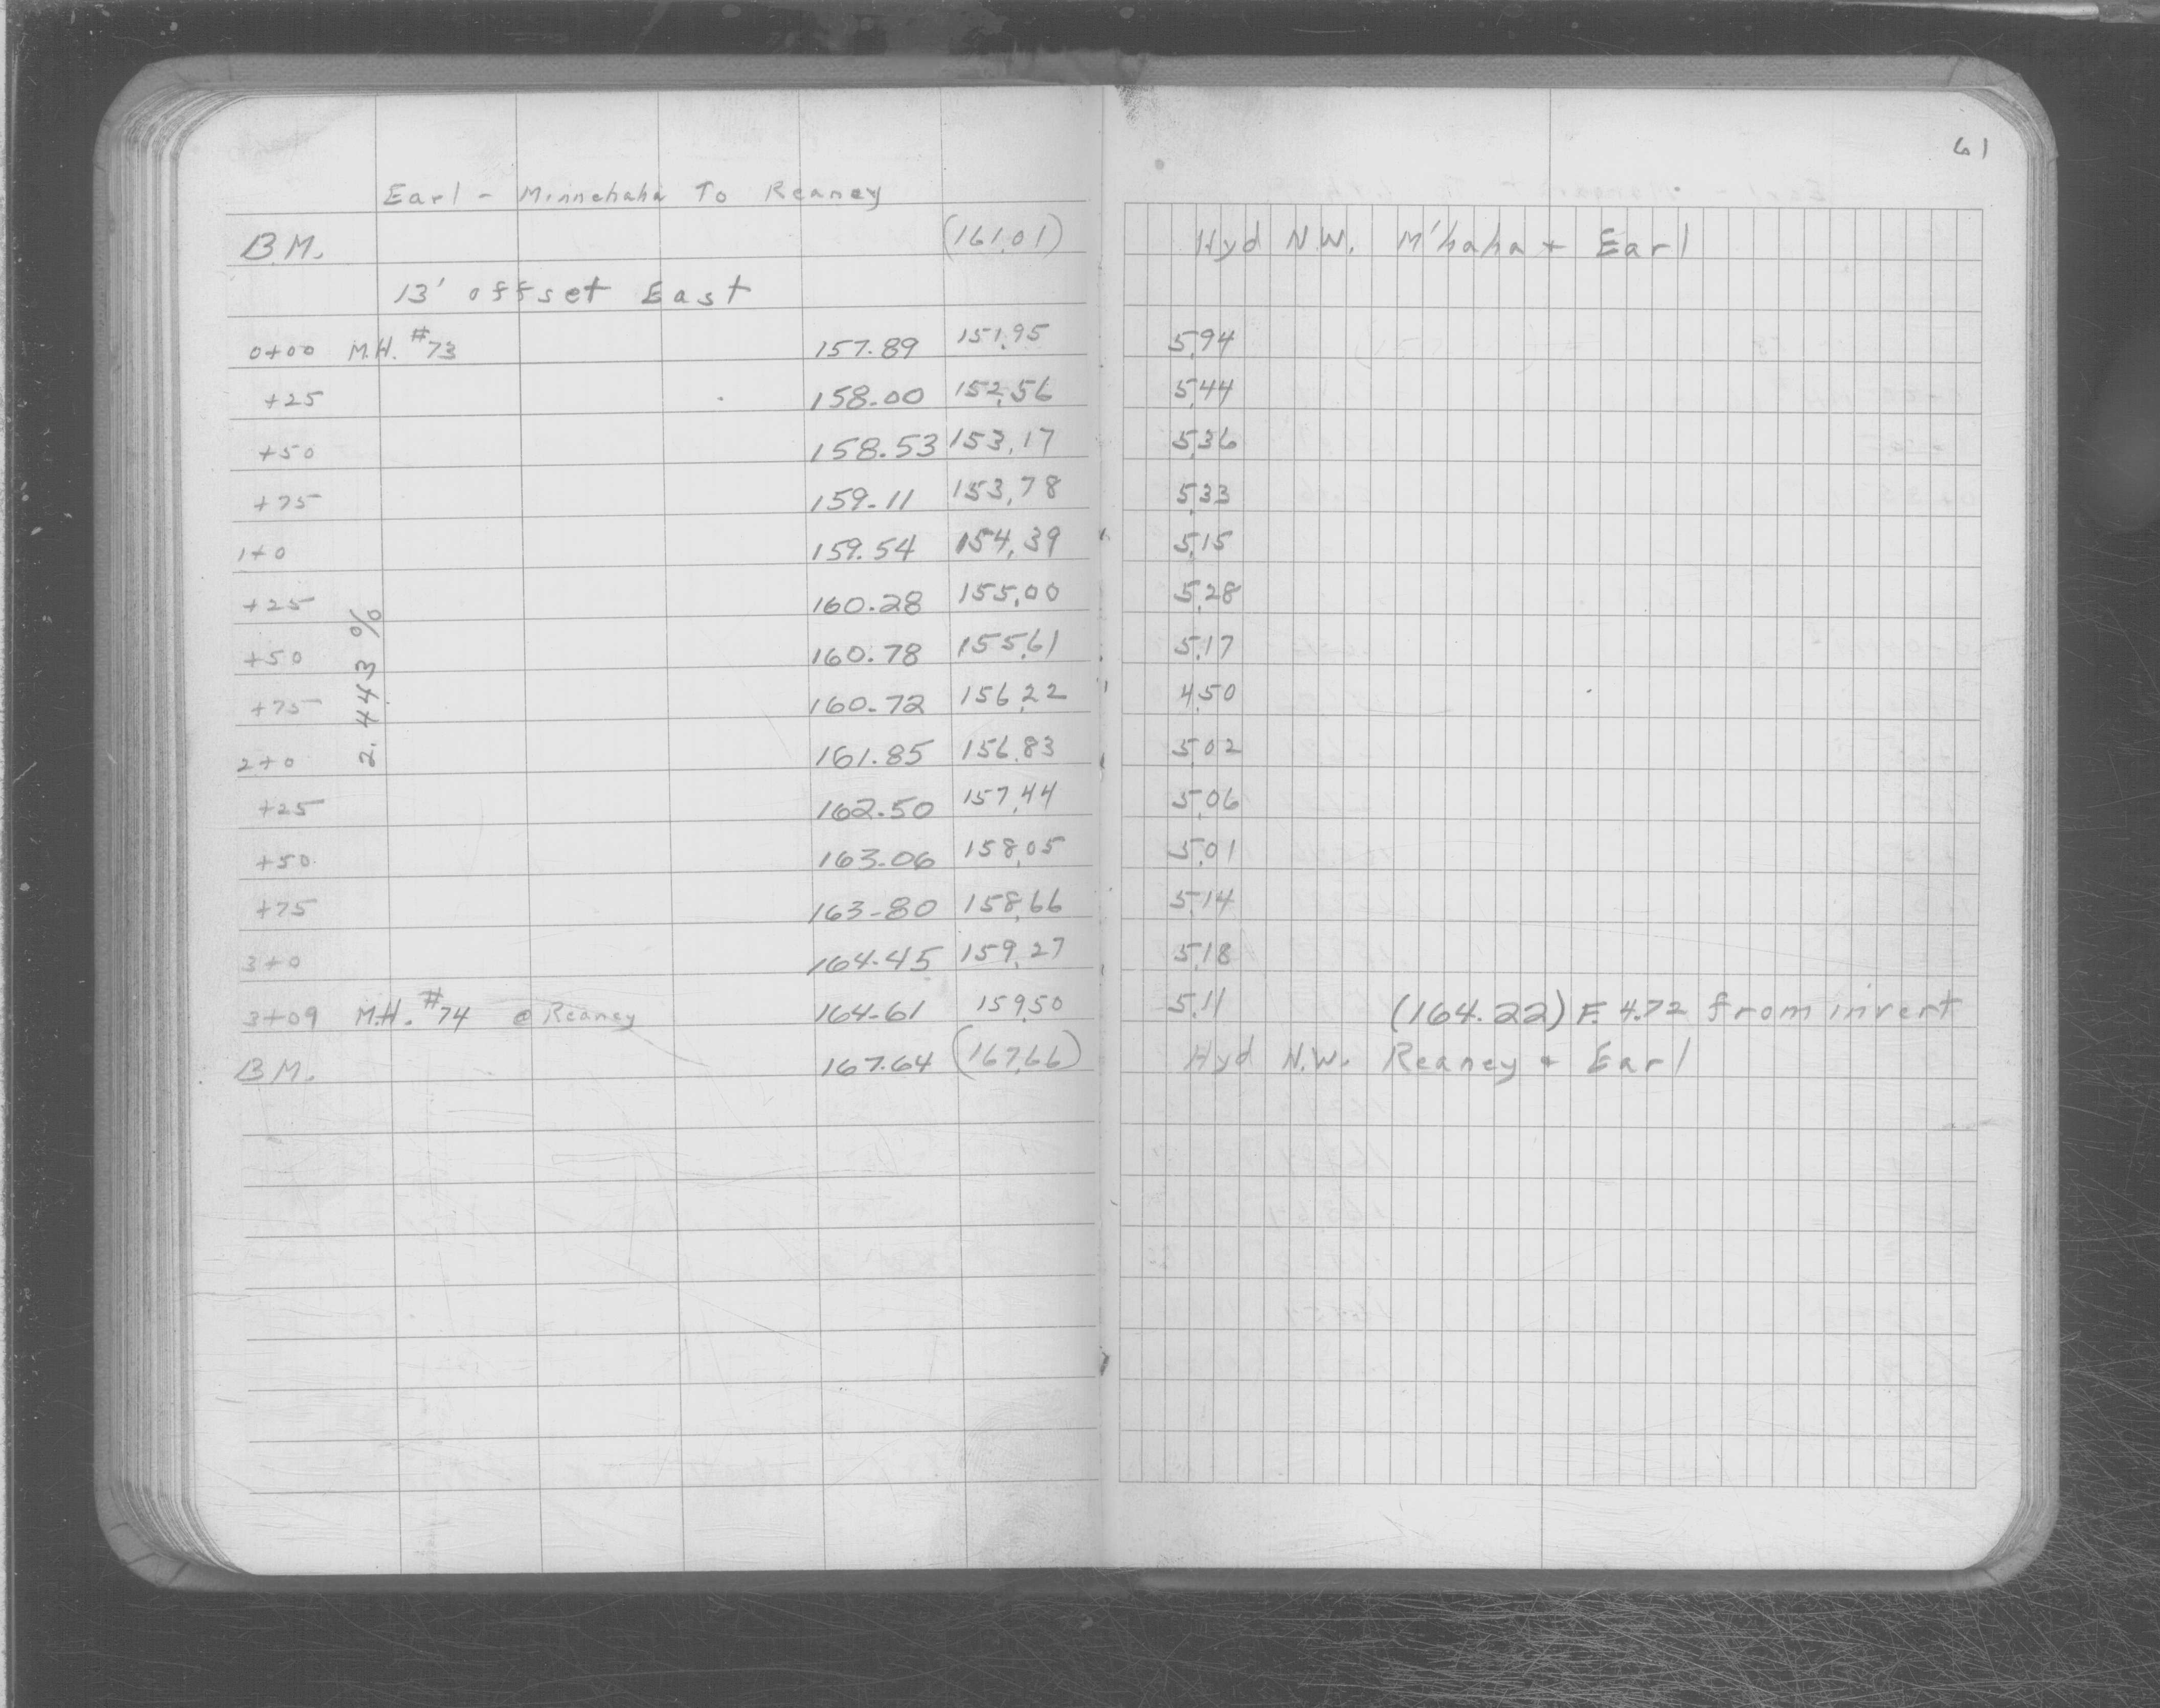 61
Earl - Minnehaha To Reaney
B.M. (161.01) Hyd N.W. M'haha + Earl
13' offset East
0+00 M.H. #73 157.89 151.95 5.94
+25 158.00 152.56 5.44
+50 158.53 153.17 5.36
+75 159.11 153.78 5.33
1+0 159.54 154.39 5.15
+25 160.28 155.00 5.28
+50 160.78 155.61 5.17
+75 160.72 156.22 4.50
2+0 161.85 156.83 5.02
+25 162.50 157.44 5.06
+50 163.06 158.05 5.01
+75 163.80 158.66 5.14
3+0 164.45 159.27 5.18
3+09 M.H. #74 @ Reaney 164.61 159.50 5.11 (164.22) F. 4.72 from invert
B.M. 167.64 (167.66) Hyd N.W. Reaney + Earl
2.443%